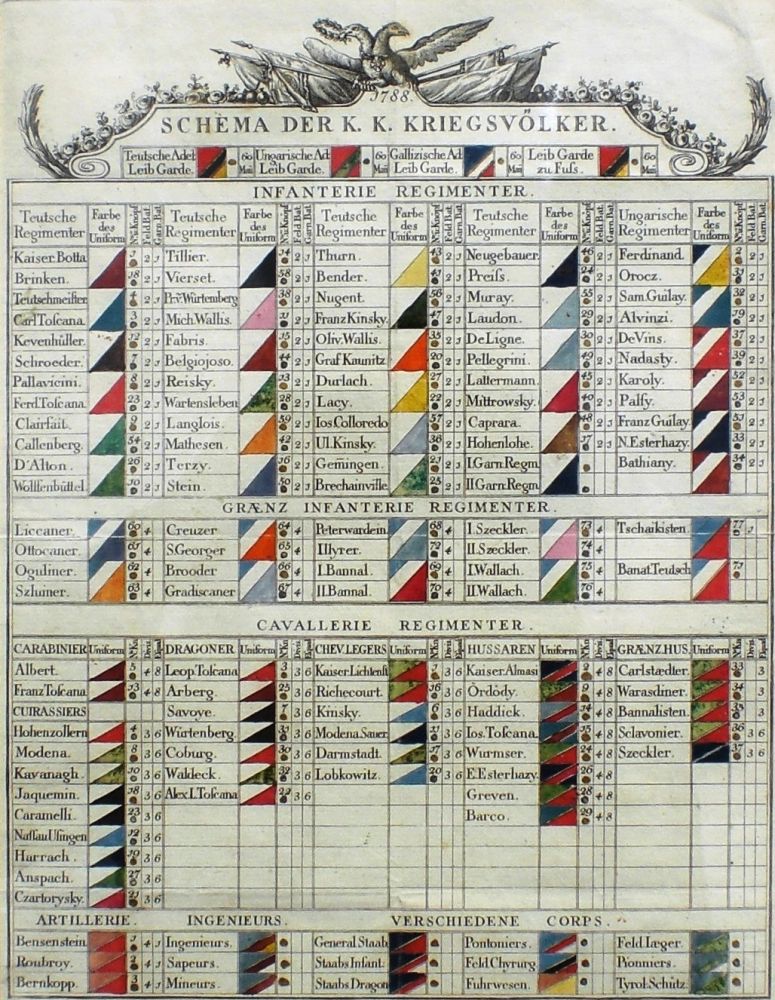 1788.
SCHEMA DER K. K. KRIEGSVÖLKER.
Teutsche Adel. Leib Garde. 60 Man Ungarische Ad. Leib Garde. 60 Man Gallizische Ad. Leib Garde. 60 Man Leib Garde zu Fuſs. 60 Man
INFANTERIE REGIMENTER.
Teutsche Regimenter Farbe des Uniform Nro Knöpf Feld Bat. Garn. Bat. Teutsche Regimenter Farbe des Uniform Nro Knöpf Feld Bat. Garn. Bat. Teutsche Regimenter Farbe des Uniform Nro Knöpf Feld Bat. Garn. Bat. Teutsche Regimenter Farbe des Uniform Nro Knöpf Feld Bat. Garn. Bat. Ungarische Regimenter Farbe des Uniform Nro Knöpf Feld Bat. Garn. Bat.
Kaiser. Botta 1 2 1 Tillier. 14 2 1 Thurn. 43 2 1 Neugebauer. 46 2 1 Ferdinand. 2 2 1
Brinken. 18 2 1 Vierset. 58 2 1 Bender. 41 2 1 Preiſs. 24 2 1 Orocz. 31 2 1
Teutschmeiſter 4 2 1 Pr. v. Würtemberg 38 2 1 Nugent. 56 2 1 Muray. 55 2 1 Sam. Guilay. 32 2 1
Carl Toſcana. 3 2 1 Mich. Wallis. 11 2 1 Franz Kinsky. 47 2 1 Laudon. 29 2 1 Alvinzi. 19 2 1
Kevenhüller. 12 2 1 Fabris. 15 2 1 Oliv. Wallis. 35 2 1 De Ligne. 30 2 1 De Vins. 37 2 1
Schroeder. 7 2 1 Belgiojoso. 44 2 1 Graf Kaunitz 20 2 1 Pellegrini. 49 2 1 Nadasty. 39 2 1
Pallavicini. 8 2 1 Reisky. 13 2 1 Durlach. 27 2 1 Lattermann. 45 2 1 Karoly. 52 2 1
Ferd. Toſcana. 23 2 1 Wartensleben 28 2 1 Lacy. 22 2 1 Mittrowsky. 40 2 1 Palfy. 53 2 1
Clairfait. 9 2 1 Langlois. 59 2 1 Ios. Colloredo 57 2 1 Caprara. 48 2 1 Franz Guilay. 51 2 1
Callenberg. 54 2 1 Mathesen. 42 2 1 Ul. Kinsky. 36 2 1 Hohenlohe. 17 2 1 N. Esterhazy. 33 2 1
D'Alton. 26 2 1 Terzy. 16 2 1 Gemingen. 21 2 1 I. Garn: Regm. Bathiany. 34 2 1
Wolffenbüttel. 10 2 1 Stein. 50 2 1 Brechainville. 25 2 1 II. Garn: Regm.
GRÆNZ INFANTERIE REGIMENTER.
Liccaner. 60 4 Creuzer 64 4 Peterwardein. 68 4 I. Szeckler. 73 4 Tschaikisten. 77 1
Ottocaner. 61 4 S. Georger 65 4 Illyrer. 72 4 II. Szeckler. 74 4
Oguliner. 62 4 Brooder 66 4 I. Bannal. 69 4 I. Wallach. 75 4 Banat Teutsch 71
Szluiner. 63 4 Gradiscaner 67 4 II. Bannal. 70 4 II. Wallach. 76 4
CAVALLERIE REGIMENTER.
CARABINIER Uniform Divis. DRAGONER. Uniform Divis. CHEV. LEGERS Uniform Divis. HUSSAREN Uniform Divis. GRÆNZ HUS. Uniform Divis.
Albert. 5 4 8 Leop. Toſcana 3 3 6 Kaiser. Lichtenſt. 1 3 6 Kaiser. Almasi 2 4 8 Carlstædter. 33 3
Franz Toſcana. 13 4 8 Arberg. 25 3 6 Richecourt. 16 3 6 Ördödy. 9 4 8 Warasdiner. 34 3
CUIRASSIERS Savoye. 7 3 6 Kinsky. 6 3 6 Haddick. 14 4 8 Bannalisten. 35 3
Hohenzollern 4 3 6 Würtenberg. 31 3 6 Modena. Sauer. 11 3 6 Ios. Toſcana. 15 4 8 Sclavonier. 36 3 6
Modena. 8 3 6 Coburg. 30 3 6 Darmstadt. 17 3 6 Wurmser. 24 4 8 Szeckler. 37 3 6
Kavanagh. 10 3 6 Waldeck. 32 3 6 Lobkowitz. 20 3 6 E. Esterhazy. 26 4 8
Jaquemin. 18 3 6 Alex. L. Toſcana 22 3 6 Greven. 28 4 8
Caramelli. 23 3 6 Barco. 29 4 8
Naſſau Uſingen 12 3 6
Harrach. 19 3 6
Anspach. 27 3 6
Czartorysky. 21 3 6
ARTILLERIE. INGENIEURS. VERSCHIEDENE CORPS.
Bensenstein. 1 4 1 Ingenieurs. General Staab Pontoniers. Feld Iæger.
Roubroy. 2 4 1 Sapeurs. Staabs Infant: Feld Chyrurg. Pionniers.
Bernkopp. 3 4 1 Mineurs. Staabs Dragon Fuhrwesen. Tyrol: Schütz.